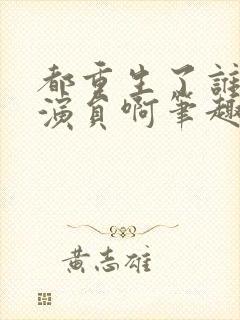 都重生了誰
演員啊筆趣
黃志雄